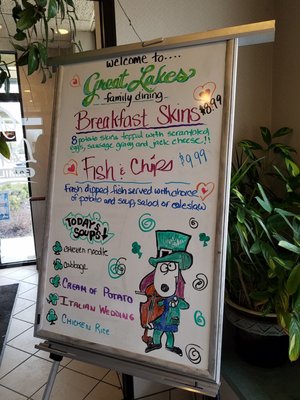 welcome to....
Great Lakes
family dining
Breakfast Skins $8.99
8 potato skins topped with scrambled
eggs, sausage gravy and jack cheese!!
Fish & Chips $9.99
Fresh dipped fish served with choice
of potato and soup, salad or coleslaw
TODAY'S
Soups!
Chicken noodle
Cabbage
Cream of Potato
Italian Wedding
Chicken Rice